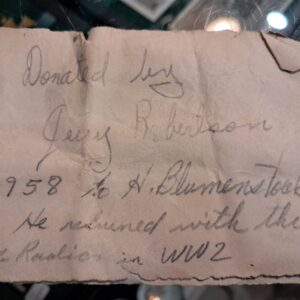 Donated by
Jerry Robertson
1958 to H. Blumenstock
He retuned with the
Radios in WW2